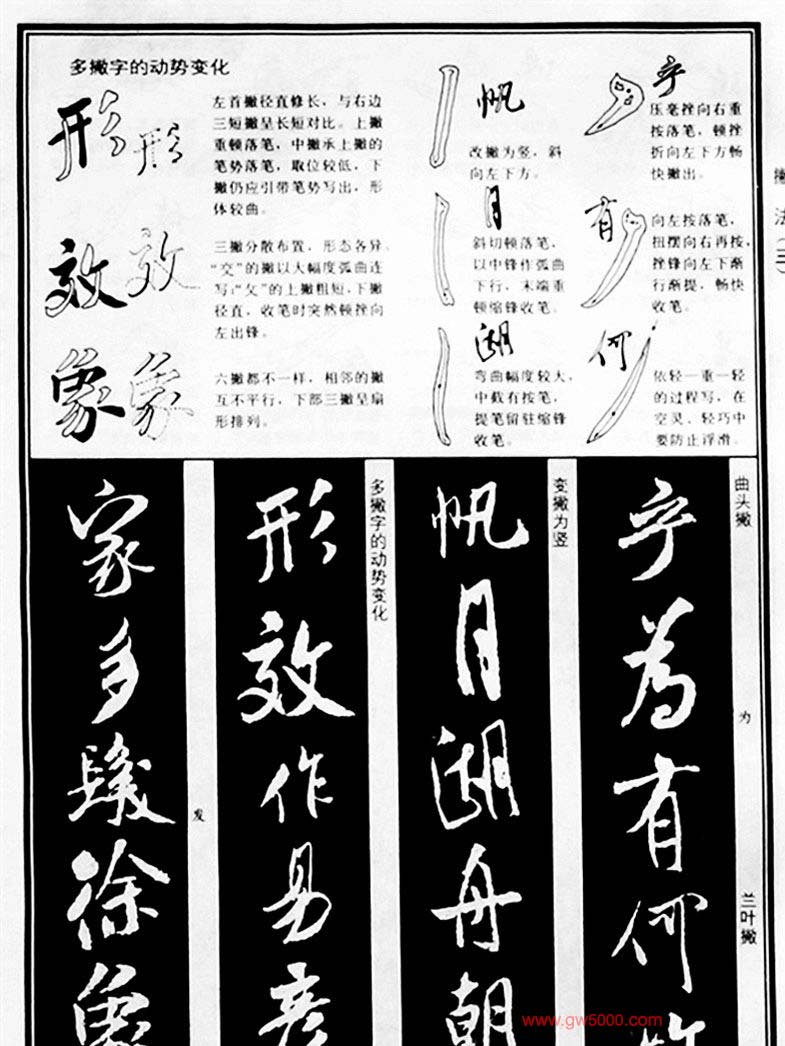 多撇字的动势变化
形 形
左首撇径直修长，与右边
三短撇呈长短对比。上撇
重顿落笔，中撇承上撇的
笔势落笔，取位较低，下
撇仍应引带笔势写出，形
体较曲。
效 效
三撇分散布置，形态各异，
“交”的撇以大幅度弧曲连
写；“攵”的上撇粗短，下撇
径直，收笔时突然顿挫向
左出锋。
象 象
六撇都不一样，相邻的撇
互不平行，下部三撇呈扇
形排列。
帆
改撇为竖，斜
向左下方。
月
斜切顿落笔，
以中锋作弧曲
下行，末端重
顿缩锋收笔。
湖
弯曲幅度较大，
中截有按笔，
提笔留驻缩锋
收笔。
乎
压毫挫向右重
按落笔，顿挫
折向左下方畅
快撇出。
有
向左按落笔，
扭摆向右再按，
挫锋向左下渐
行渐提，畅快
收笔。
何
依轻—重—轻
的过程写，在
空灵、轻巧中
要防止浮滑。
撇法（三）
曲头撇
为
兰叶撇
乎为有何
变撇为竖
帆月湖舟朝
多撇字的动势变化
形效作易彦
发
家多徐象
www.gw5000.com